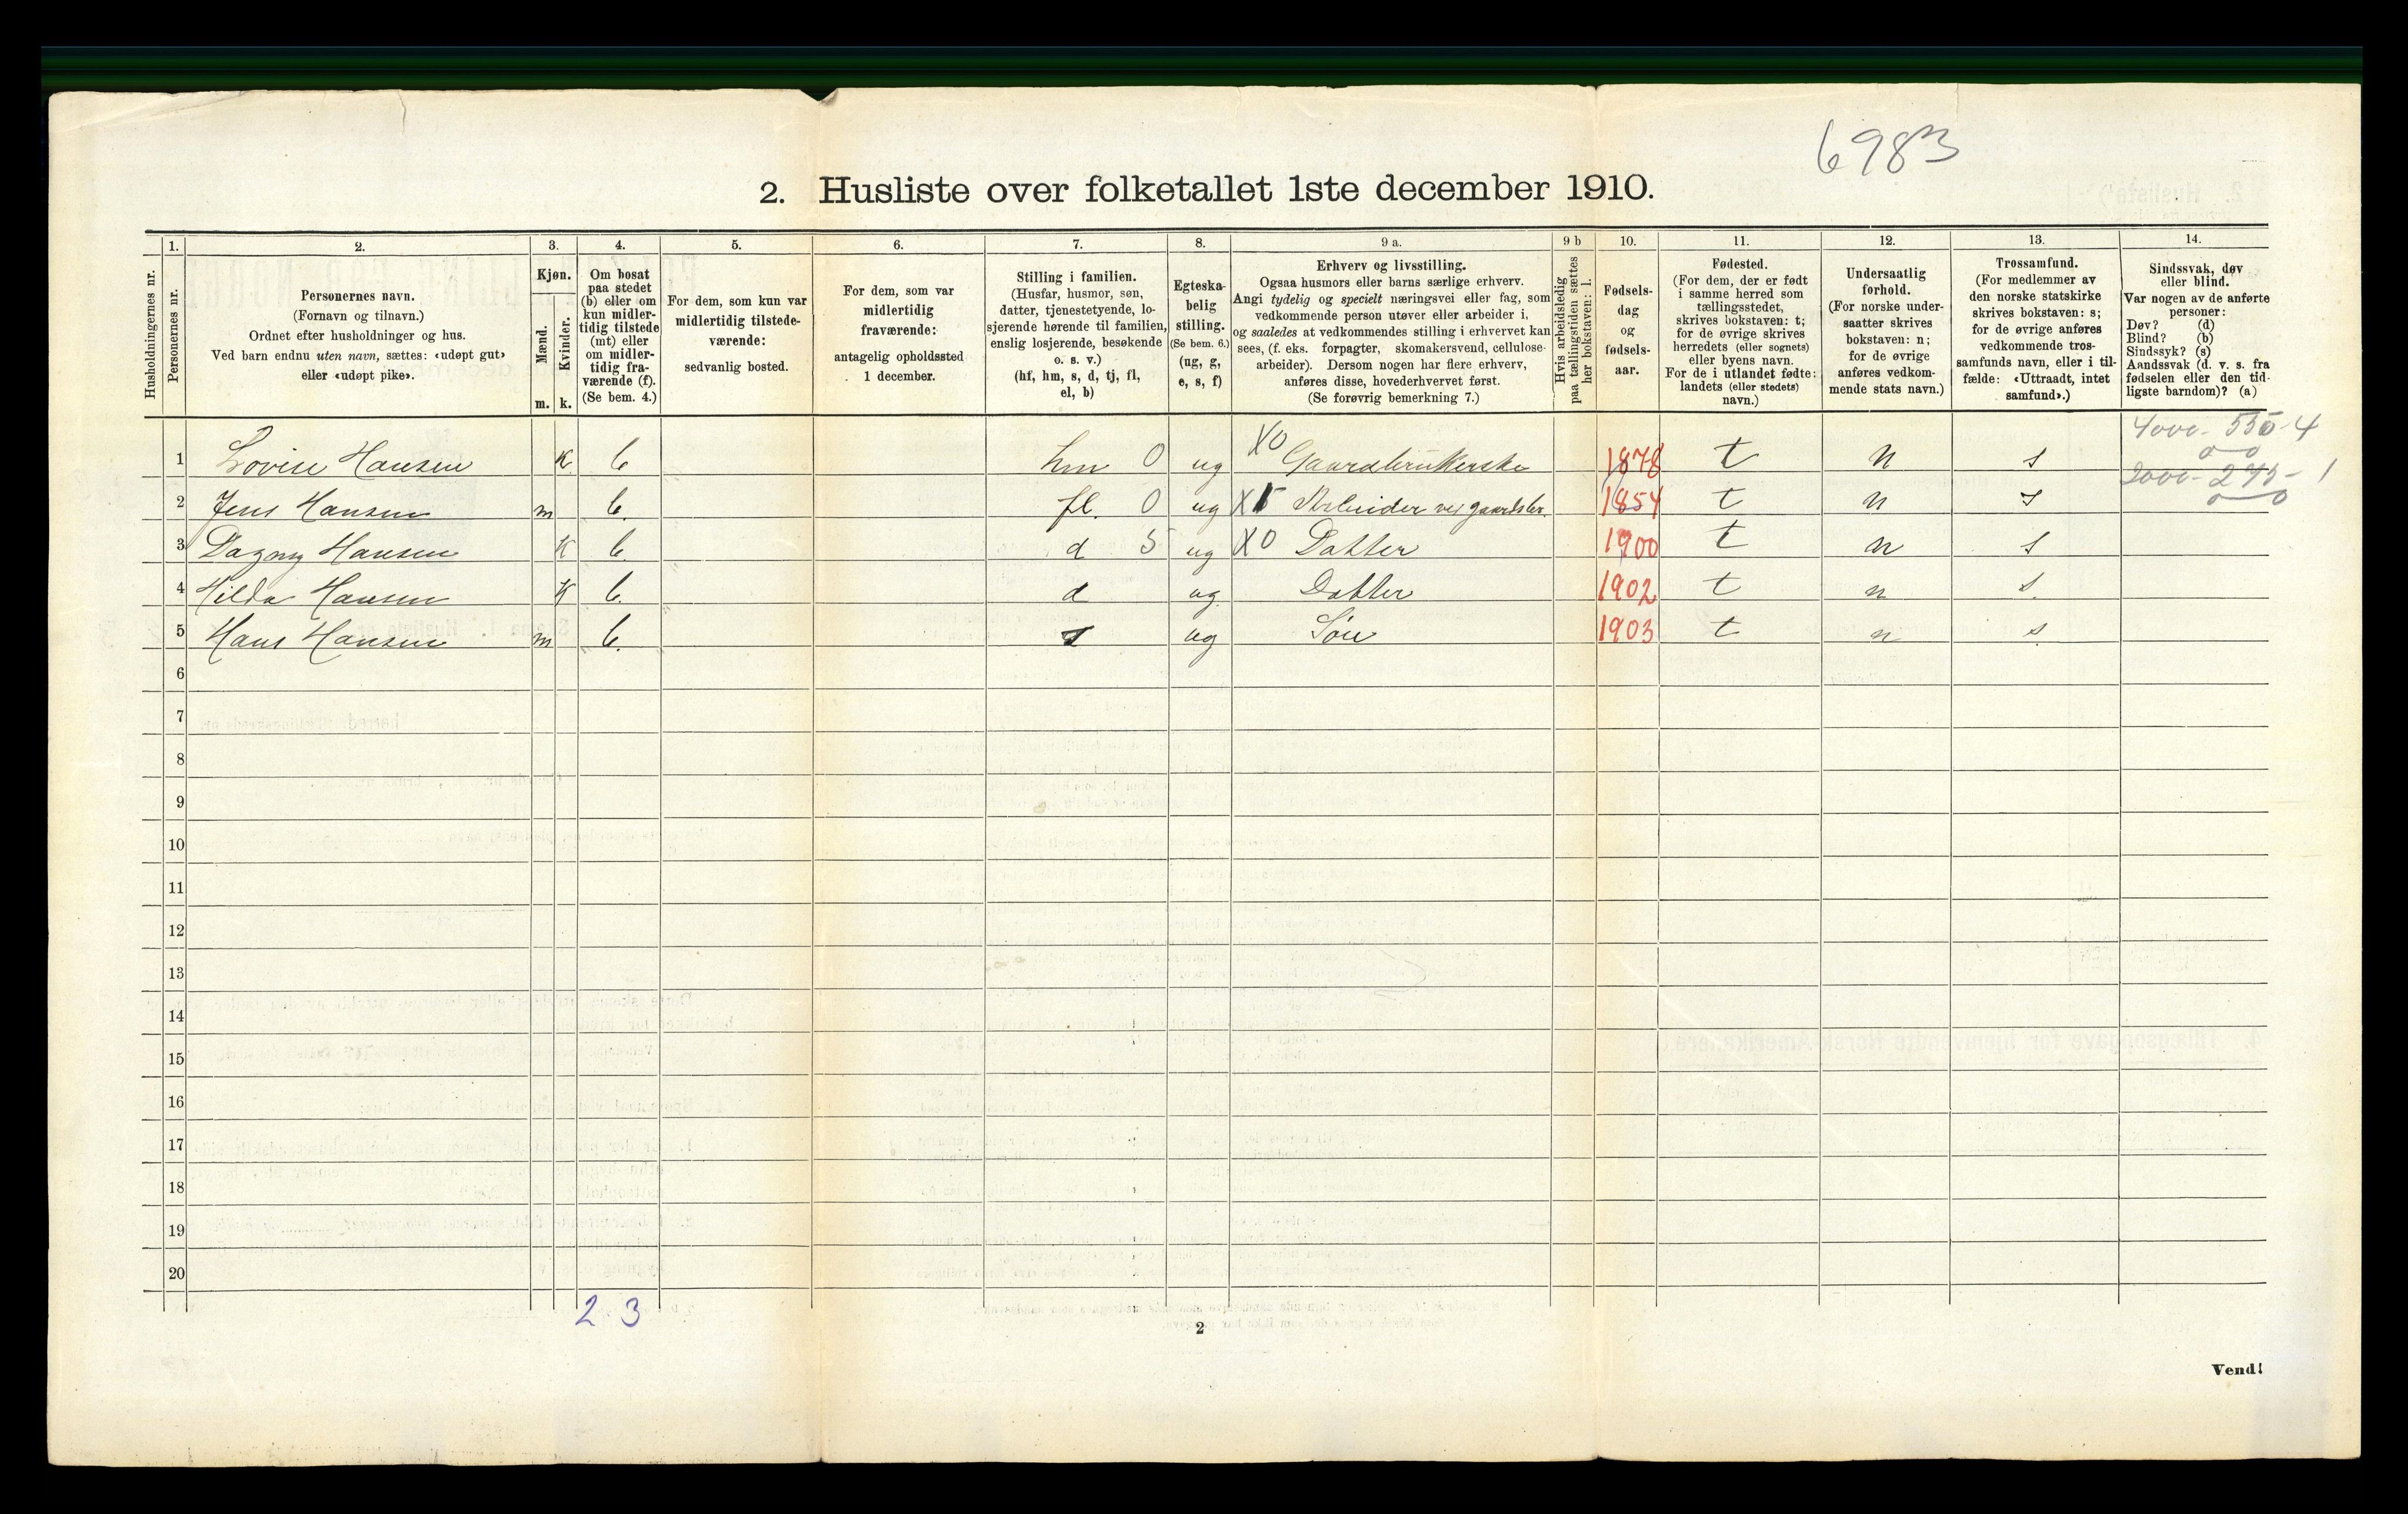 6983
2. Husliste over folketallet 1ste december 1910.
Husholdningernes nr.
1.
Personernes nr.
2.
Personernes navn.
(Fornavn og tilnavn.)
Ordnet efter husholdninger og hus.
Ved barn endnu uten navn, sættes: «udøpt gut»
eller «udøpt pike».
3.
Kjøn.
Mænd.
Kvinder.
m. k.
4.
Om bosat
paa stedet
(b) eller om
kun midler-
tidig tilstede
(mt) eller
om midler-
tidig fra-
værende (f).
(Se bem. 4.)
5.
For dem, som kun var
midlertidig tilstede-
værende:
sedvanlig bosted.
6.
For dem, som var
midlertidig
fraværende:
antagelig opholdssted
1 december.
7.
Stilling i familien.
(Husfar, husmor, søn,
datter, tjenestetyende, lo-
sjerende hørende til familien,
enslig losjerende, besøkende
o. s. v.)
(hf, hm, s, d, tj, fl,
el, b)
8.
Egteska-
belig
stilling.
(Se bem. 6.)
(ug, g,
e, s, f)
9 a.
Erhverv og livsstilling.
Ogsaa husmors eller barns særlige erhverv.
Angi tydelig og specielt næringsvei eller fag, som
vedkommende person utøver eller arbeider i,
og saaledes at vedkommendes stilling i erhvervet kan
sees, (f. eks. forpagter, skomakersvend, cellulose-
arbeider). Dersom nogen har flere erhverv,
anføres disse, hovederhvervet først.
(Se forøvrig bemerkning 7.)
9 b
Hvis arbeidsledig
paa tællingstiden sættes
her bokstaven: l.
10.
Fødsels-
dag
og
fødsels-
aar.
11.
Fødested.
(For dem, der er født
i samme herred som
tællingsstedet,
skrives bokstaven: t;
for de øvrige skrives
herredets (eller sognets)
eller byens navn.
For de i utlandet fødte:
landets (eller stedets)
navn.)
12.
Undersaatlig
forhold.
(For norske under-
saatter skrives
bokstaven: n;
for de øvrige
anføres vedkom-
mende stats navn.)
13.
Trossamfund.
(For medlemmer av
den norske statskirke
skrives bokstaven: s;
for de øvrige anføres
vedkommende tros-
samfunds navn, eller i til-
fælde: «Uttraadt, intet
samfund».)
14.
Sindssvak, døv
eller blind.
Var nogen av de anførte
personer:
Døv? (d)
Blind? (b)
Sindssyk? (s)
Aandssvak (d. v. s. fra
fødselen eller den tid-
ligste barndom)? (a)
4000 - 550 - 4
1 Lovise Hansen K b hm 0 ug X0 Gaardbrukerske 1878 t n s
2000 - 275 - 1
2 Jens Hansen m b. fl. 0 ug X Arbeider ved gaardsbr. 1854 t n s
3 Dagny Hansen K b. d 5 ug X0 Datter 1900 t n s
4 Hilda Hansen K b. d ug. Datter 1902 t n s.
5 Hans Hansen m b. s ug Søn 1903 t n s.
6
7
8
9
10
11
12
13
14
15
16
17
18
19
20
2. 3
2
Vend!